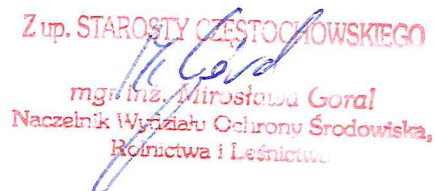 Z up. STAROSTY CZĘSTOCHOWSKIEGO
mgr inż. Mirosława Goral
Naczelnik Wydziału Ochrony Środowiska,
Rolnictwa i Leśnictwa